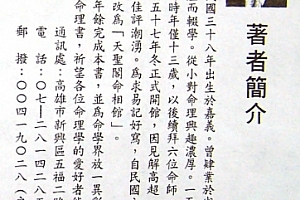 著者簡介
國三十八年出生於嘉義。曾肄業於
而輟學。從小對命理興趣濃厚。一
時年僅十三歲，以後續拜六位命師
五十七年冬正式開館，因見解高超
佳評潮湧。為求易記好寫，自民國
改為「天聖閣命相館」。
年餘完成本書，並為命學界放一異彩
命理書，祈望各位命理學的愛好者能
通訊處：高雄市新興區五福二路
電話：○七—二八一四二八
郵撥：○○四一九○二八